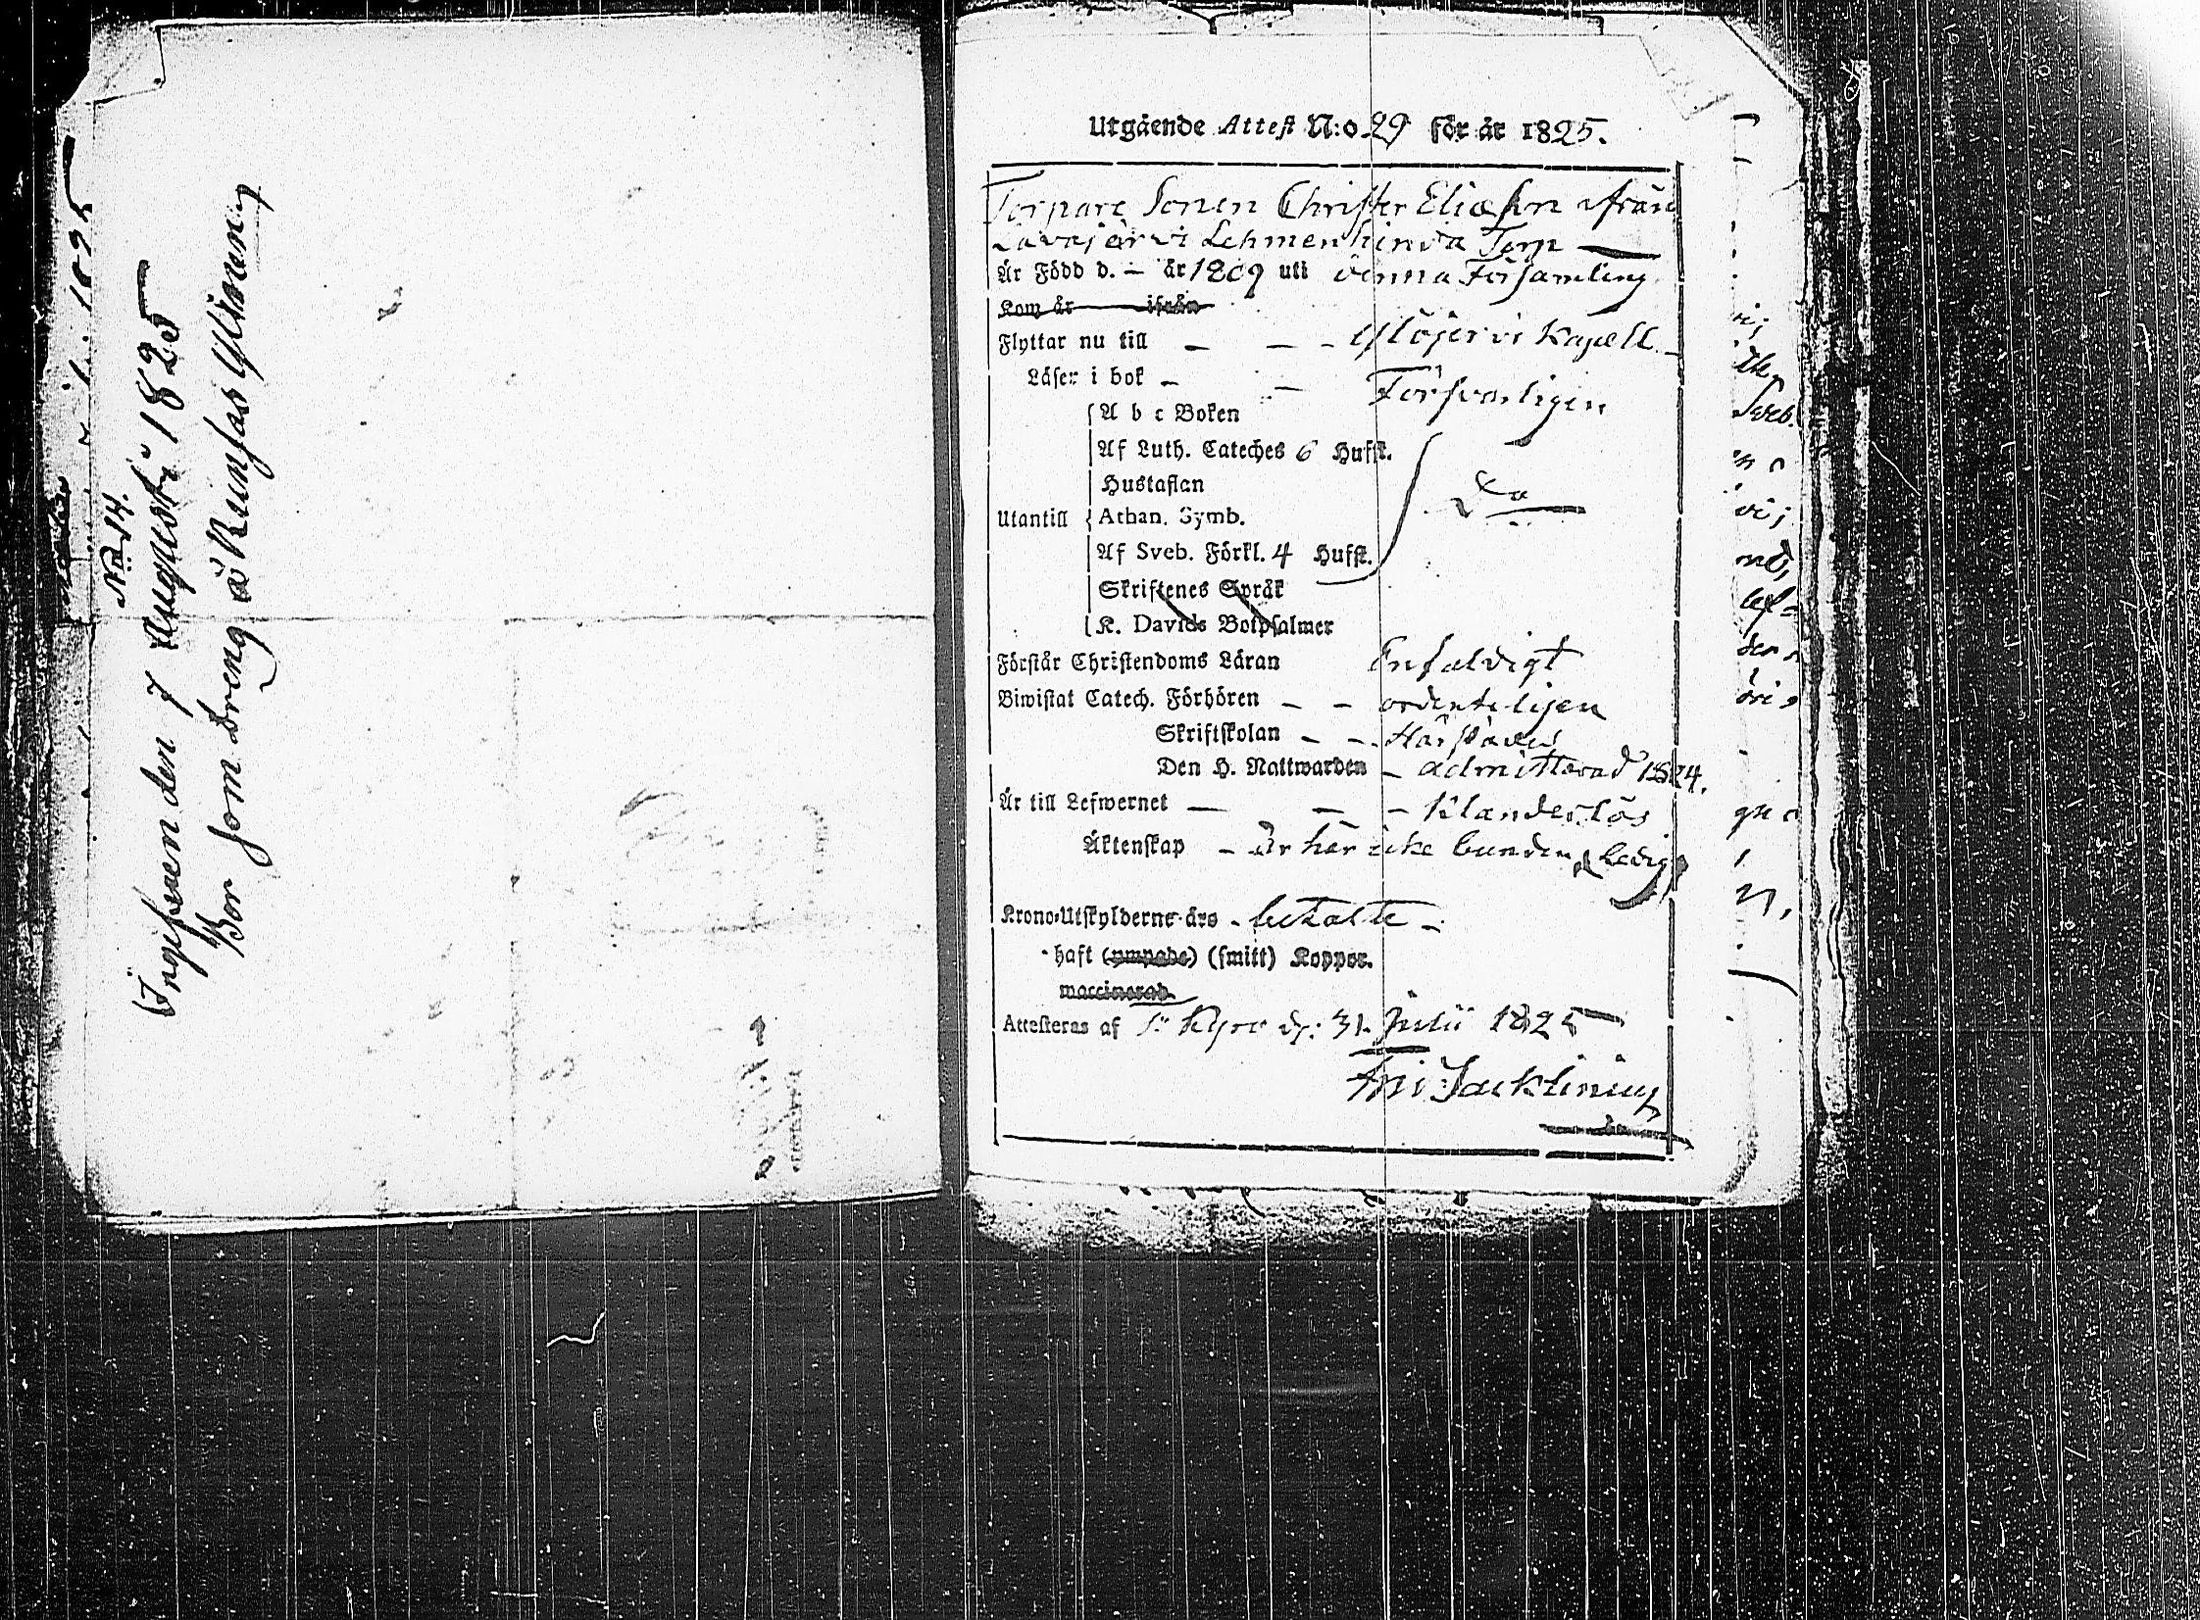 No 14.
Ingifven den 7 Augusti 1825
Bor som dreng å Runsas Ylinen
Utgående Attest N:o 29 för år 1825.
Torpare Sonen Christer Eliæson ifrån
Lavajärvi Lehmenhinda Torp
Är Född d. – år 1809 uti denna Församling
Kom år ifrån
Flyttar nu till – – – Ylöjervi Kapell –
Läser i bok – – Försvarligen
A b c Boken
Af Luth. Cateches 6 Hufst.
Hustaflan
Utantill Athan. Symb. Do
Af Sveb. Förkl. 4 Hufst.
Skriftenes Språk
K. Davids Botpsalmer
Förstår Christendoms Läran Enfaldigt
Biwistat Catech. Förhören – – ordenteligen
Skriftskolan – –
Den H. Nattwarden – admitterad 1824.
Är till Lefwernet – – – Klanderlös
Äktenskap – Är här icke bunden, Ledig
Krono-Utskylderne äro – betalte –
haft (ympade) (smitt) Koppor.
waccinerad
Attesteras af Kyro d: 31. Julii 1825